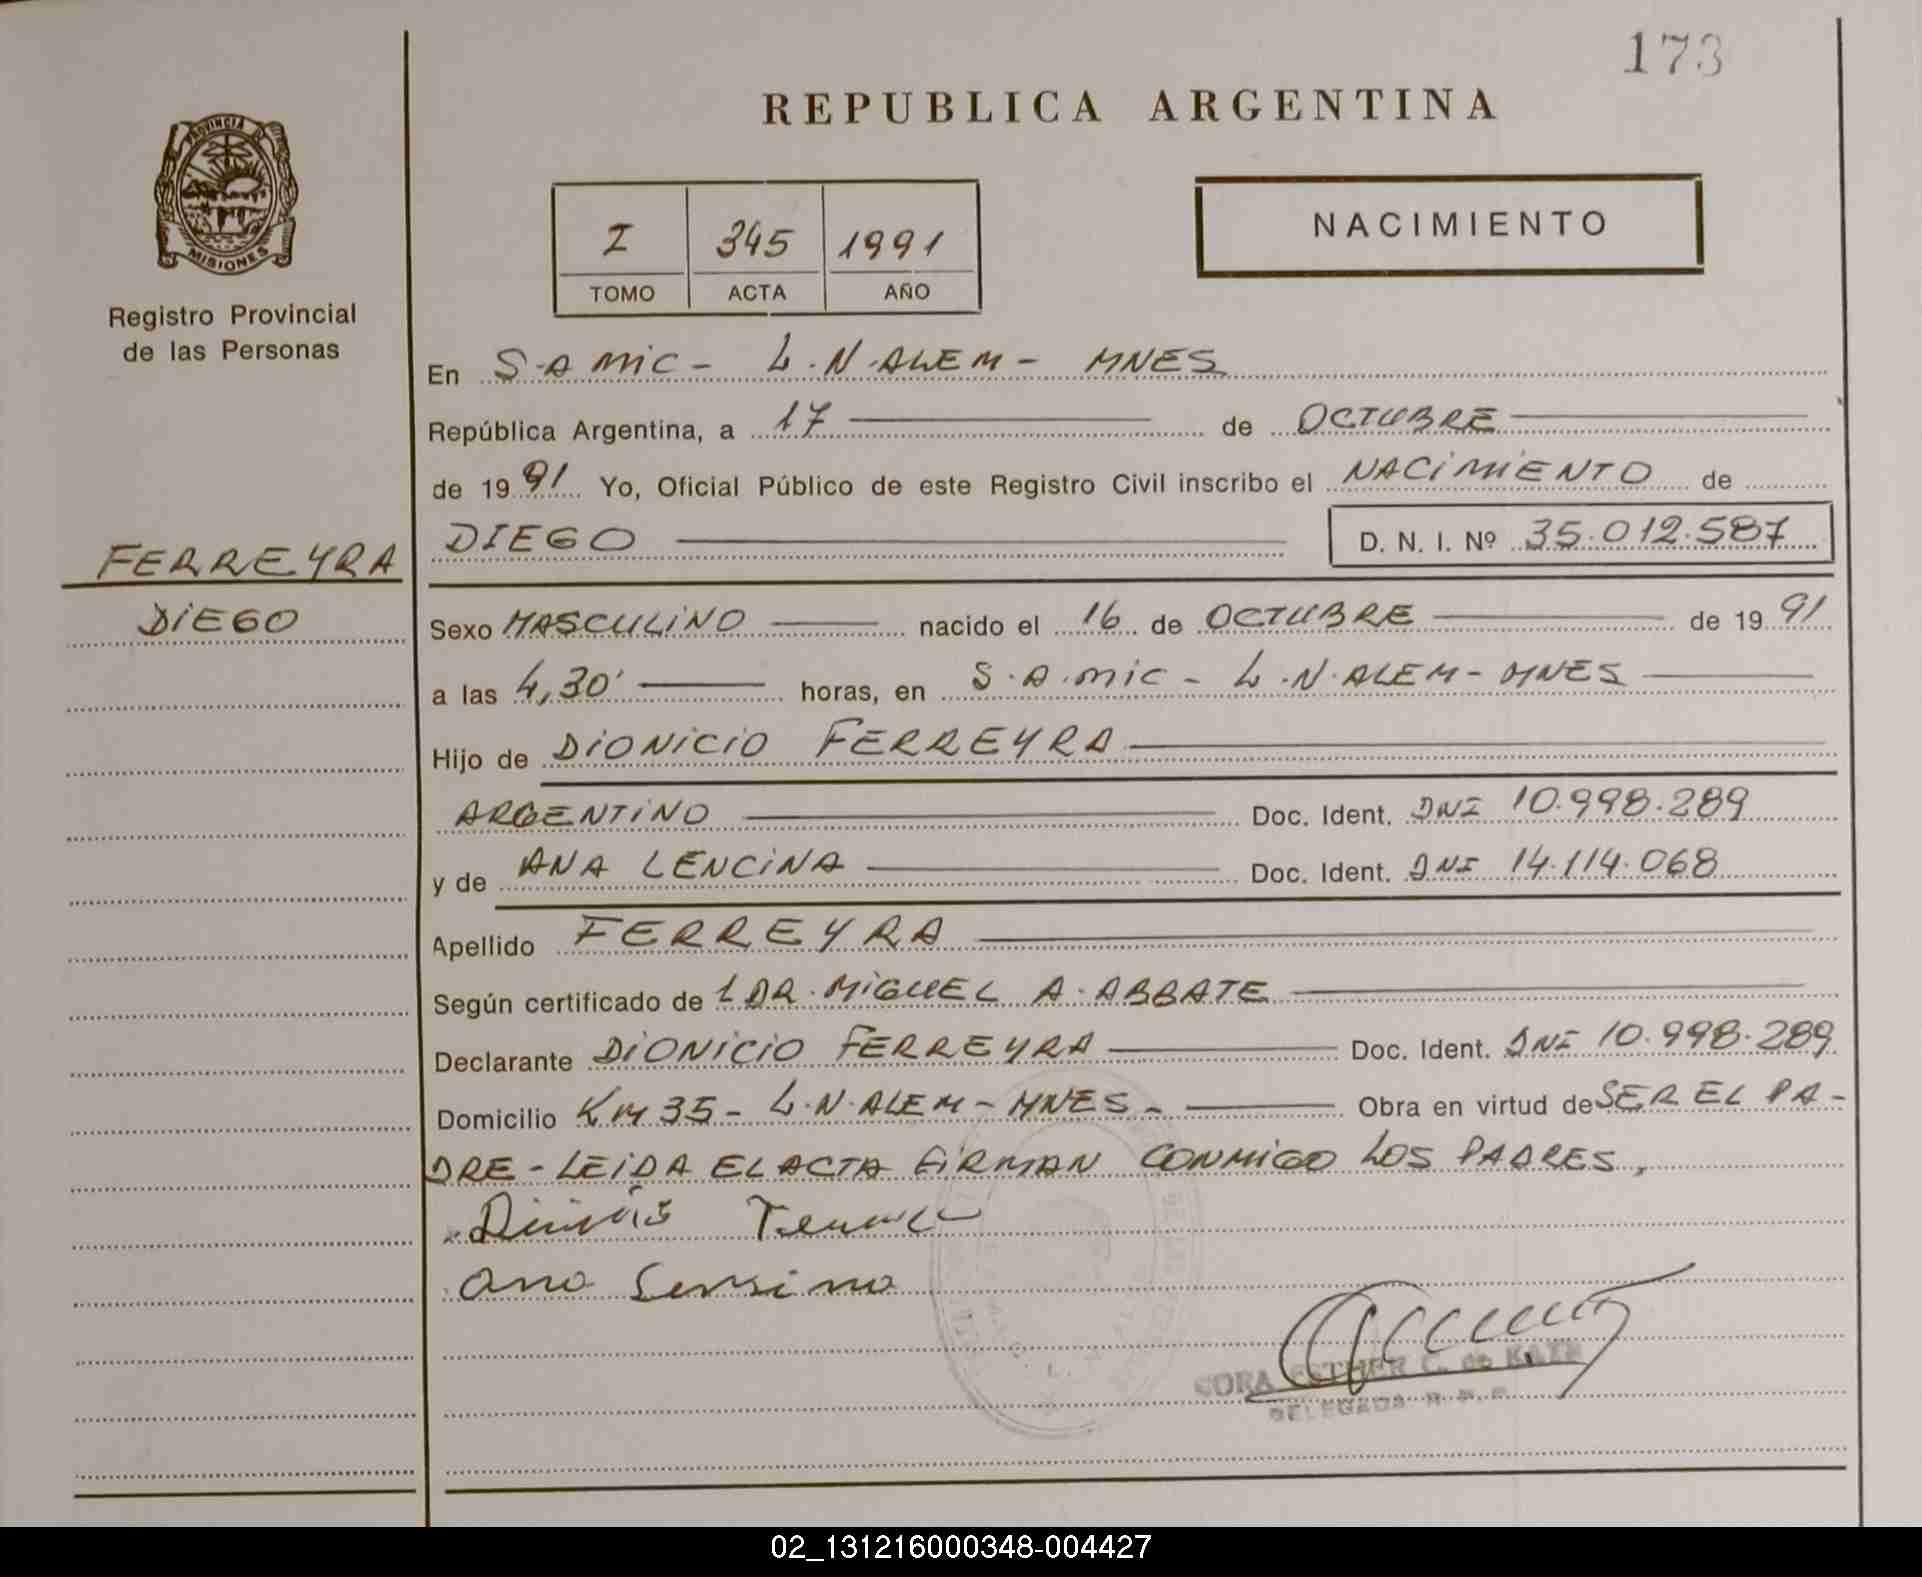 173
REPUBLICA ARGENTINA
PROVINCIA DE
MISIONES
Registro Provincial
de las Personas
I 345 1991
TOMO ACTA AÑO
NACIMIENTO
En S.A MIC - L.N.ALEM - MNES
República Argentina, a 17 de OCTUBRE
de 1991 Yo, Oficial Público de este Registro Civil inscribo el NACIMIENTO de
DIEGO D. N. I. Nº 35.012.587
FERREYRA
DIEGO
Sexo MASCULINO nacido el 16 de OCTUBRE de 1991
a las 4,30' horas, en S.A.MIC - L.N.ALEM - MNES
Hijo de DIONICIO FERREYRA
ARGENTINO Doc. Ident. DNI 10.998.289
y de ANA LENCINA Doc. Ident. DNI 14.114.068
Apellido FERREYRA
Según certificado de 1 DR. MIGUEL A. ABBATE
Declarante DIONICIO FERREYRA Doc. Ident. DNI 10.998.289
Domicilio Km 35 - L.N.ALEM - MNES - Obra en virtud de SER EL PA-
DRE - LEIDA EL ACTA FIRMAN CONMIGO LOS PADRES,
Ana
ESTHER C. de
DELEGADA R. P. P.
02_131216000348-004427